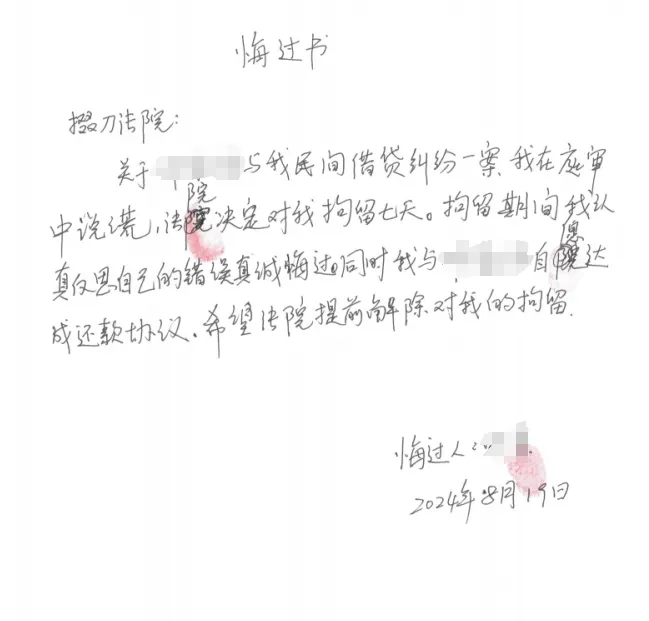 悔过书
掇刀法院：
关于与我民间借贷纠纷一案，我在庭审
中说谎，法院决定对我拘留七天。拘留期间我认
真反思自己的错误真诚悔过同时我与自愿达
成还款协议、希望法院提前解除对我的拘留.
悔过人：
2024年8月19日